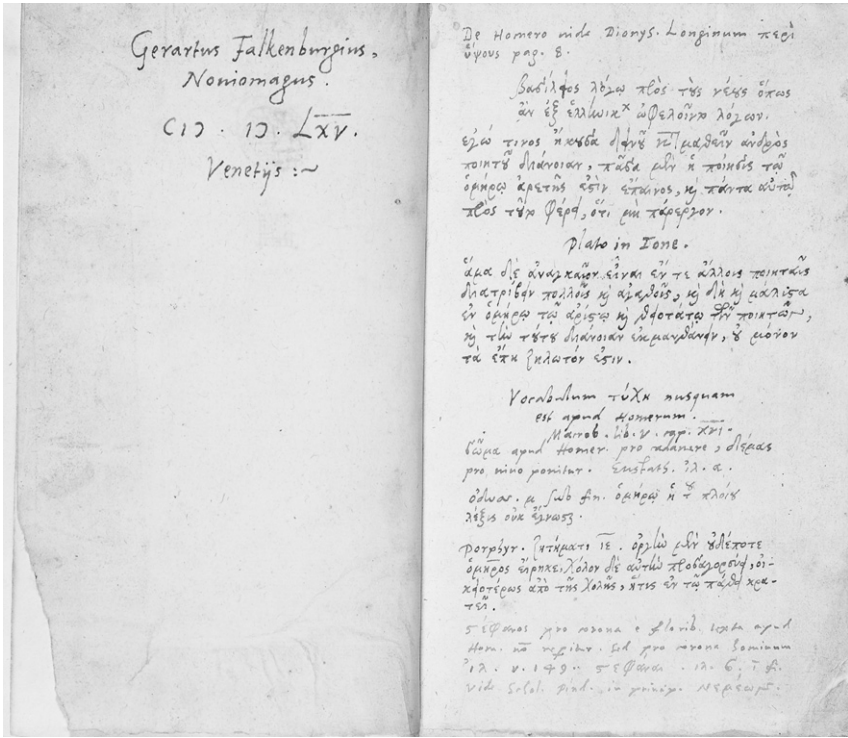 Gerartus Falkenburgius,
Noviomagus.
CIƆ . IƆ . LXV.
Venetijs :~
De Homero vide Dionys. Longinum περὶ
ὕψους pag. 8.
βασίλειος λόγῳ πρὸς τοὺς νέους ὅπως
ἂν ἐξ ἑλλήνικ ὠφελοῖντο λόγων.
ἐγώ τινος ἤκουσα δεινοῦ καταμαθεῖν ἀνδρὸς
ποιητοῦ διάνοιαν, πᾶσα μὲν ἡ ποίησις τῷ
ὁμήρῳ ἀρετῆς ἐστὶν ἔπαινος, καὶ πάντα αὐτῷ
πρὸς τοῦτο φέρει, ὅτι μὴ πάρεργον.
Plato in Ione.
ἅμα δὲ ἀναγκαῖον εἶναι ἔν τε ἄλλοις ποιηταῖς
διατρίβειν πολλοῖς καὶ ἀγαθοῖς, καὶ δὴ καὶ μάλιστα
ἐν ὁμήρῳ τῷ ἀρίστῳ καὶ θειοτάτῳ τῶν ποιητῶν,
καὶ τὴν τούτου διάνοιαν ἐκμανθάνειν, οὐ μόνον
τὰ ἔπη ζηλωτόν ἐστιν.
Vocabulum τύχη nusquam
est apud Homerum.
Macrob. lib. V. cap. XVI.
σῶμα apud Homer. pro cadavere, δέμας
pro vivo ponitur. Eustath. ἰλ. α.
ὀδυσσ. μ sub fin. ὁμήρῳ ἡ τοῦ πλοίου
λέξις οὐκ ἔγνωσται.
Porphyr. ζητήματι ιε. ὀργὴν μὲν οὐδέποτε
ὅμηρος εἴρηκε, χόλον δὲ αὐτὴν προσαγορεύει, οἰ-
κειοτέρως ἀπὸ τῆς χολῆς, ἥτις ἐν τῷ πάθει κρα-
τεῖ.
στέφανος pro corona e florib. texta apud
Hom. nō reperitur. sed pro corona hominum
ἰλ. ν. 149. στεφάναι. ἰλ. fi.
vide Schol. Pind. in princip. Νεμέων.